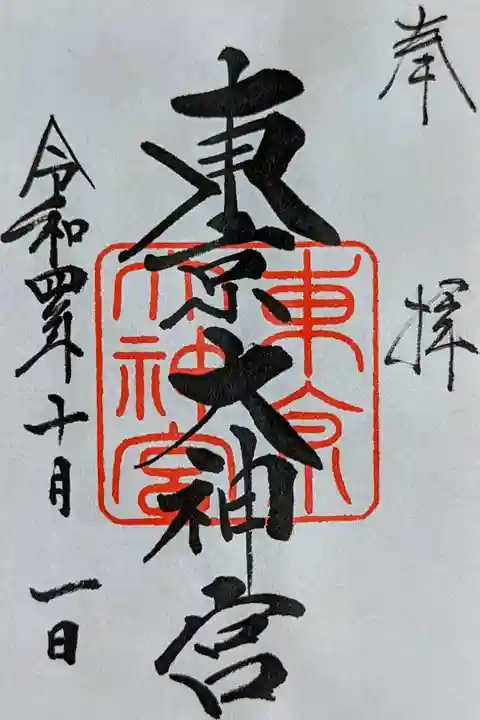 奉拝
東京大神宮
東京大神宮
令和四年十月一日